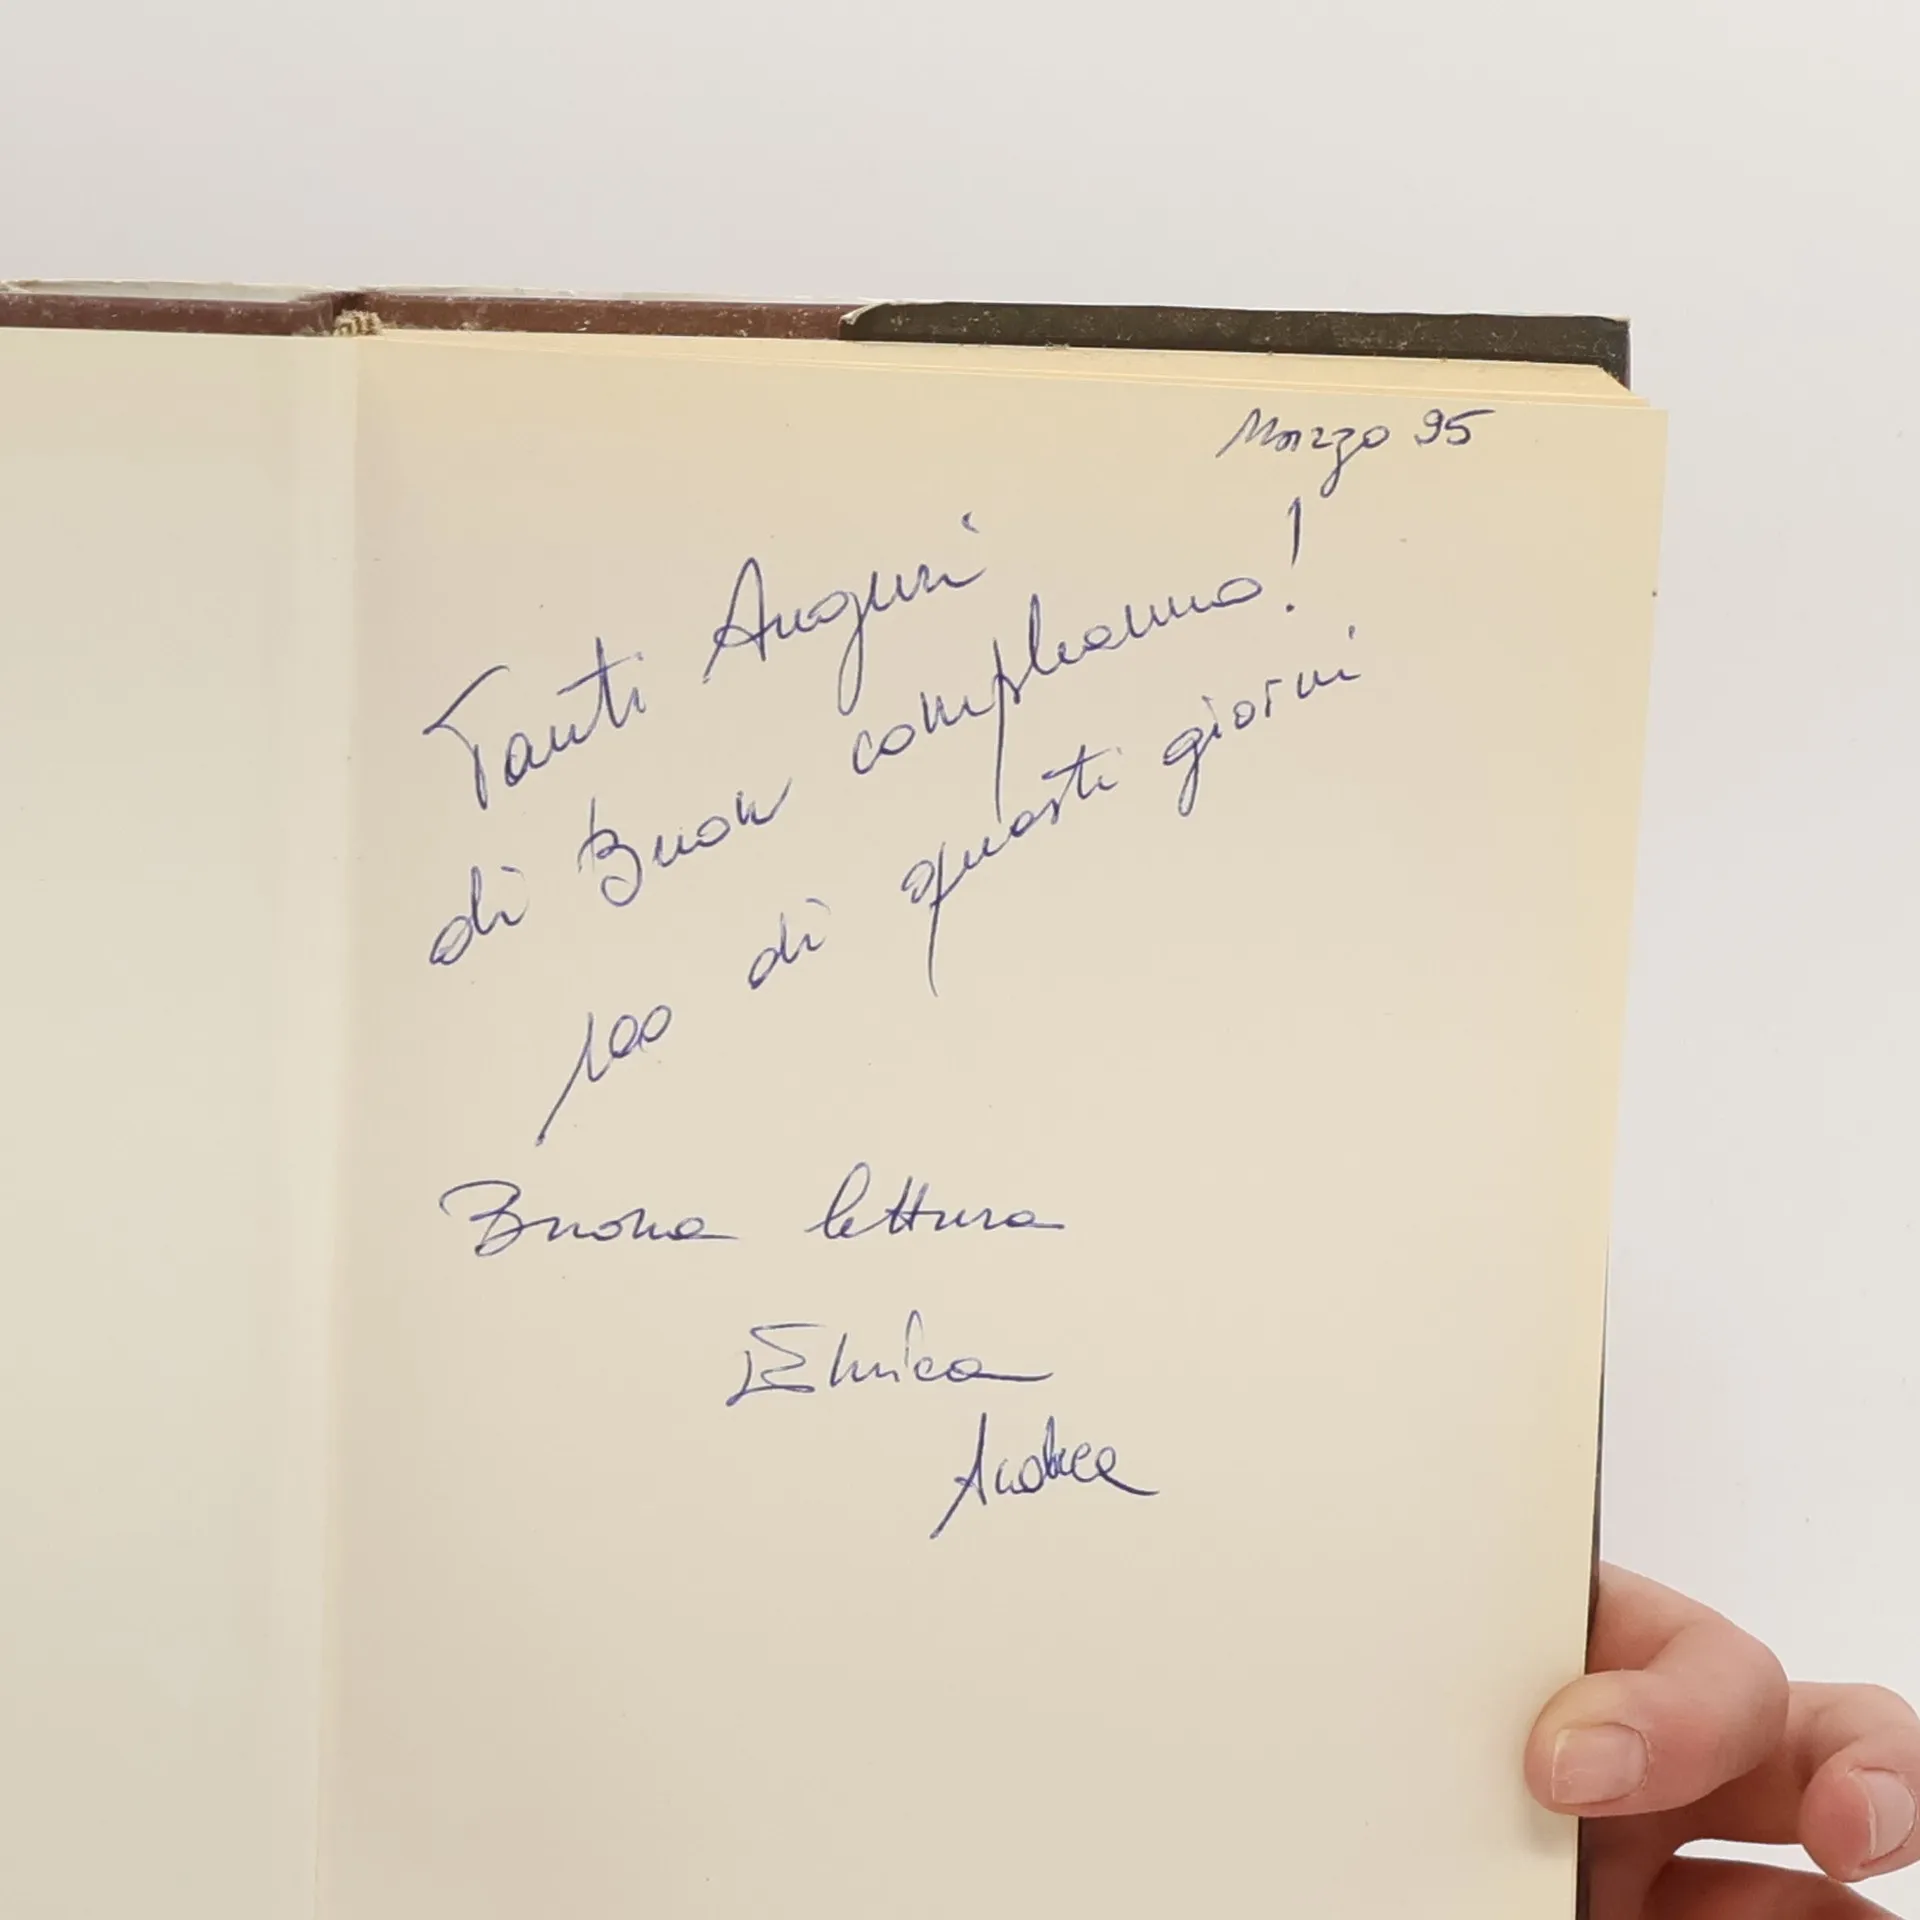 Marzo 95
Tanti Auguri
di Buon compleanno!
100 di questi giorni
Buona lettura
Andrea